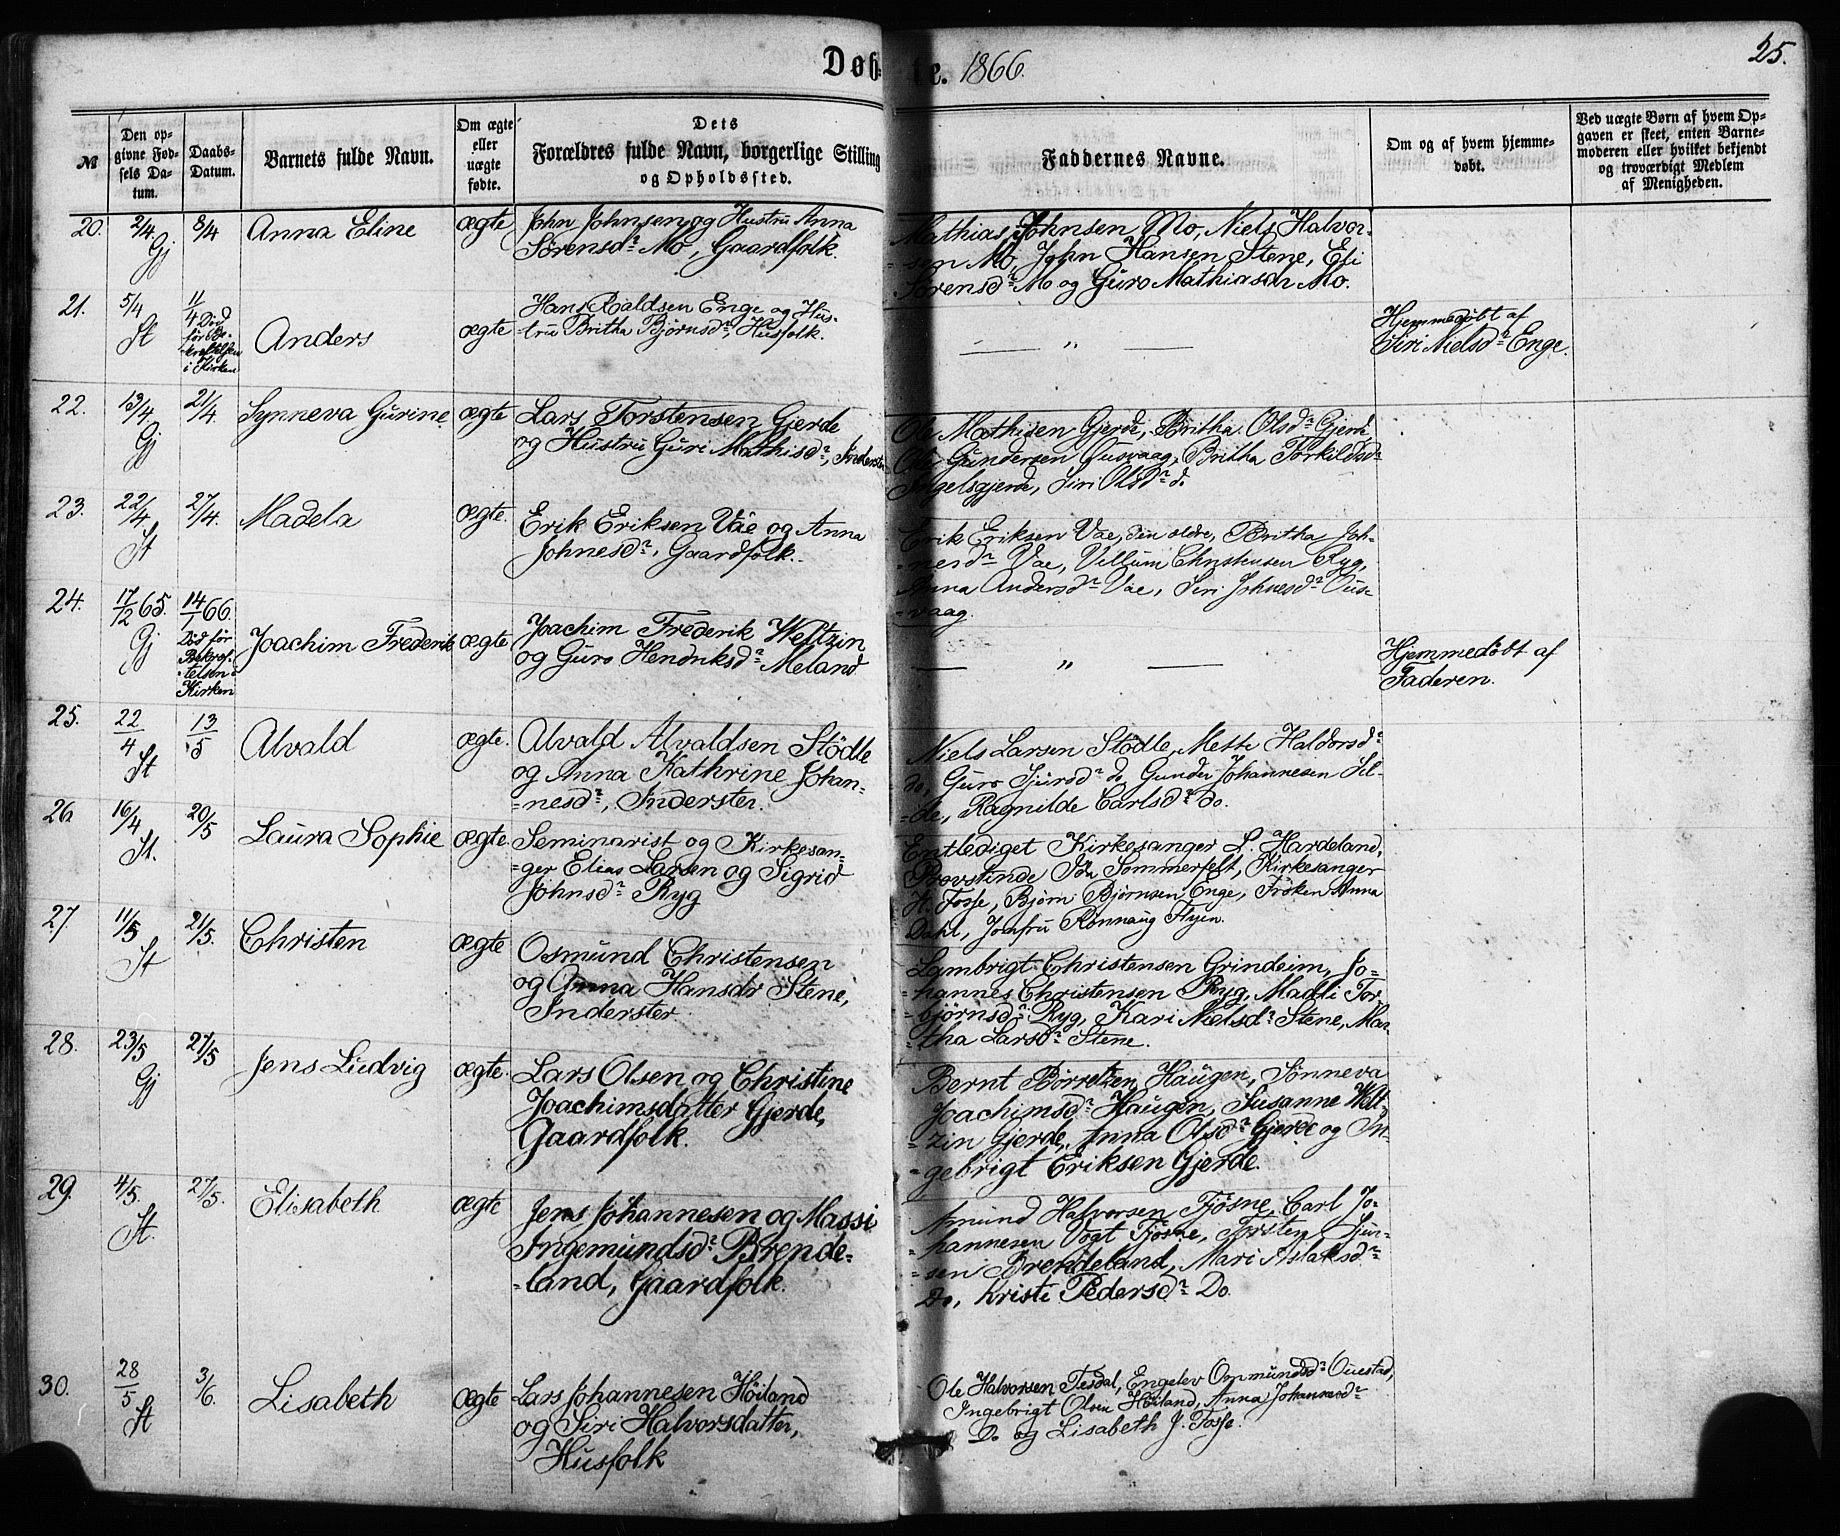 Døb-te. 1866. 25.
№ | Den opgivne Fødsels Datum. | Daabs-Datum. | Barnets fulde Navn. | Om ægte eller uægte fødte. | Dets Forældres fulde Navn, borgerlige Stilling og Opholdssted. | Faddernes Navne. | Om og af hvem hjemmedøbt. | Ved uægte Børn af hvem Opgaven er skeet, enten Barnemoderen eller hvilket bekjendt og troværdigt Medlem af Menigheden.
20. 2/4. Gj 8/4 Anna Eline ægte
John Johnsen og Hustru Anna
Sörensdr Mo, Gaardfolk.
Mathias Johnsen Mo, Niels Halvor-
-sen Mo, John Hansen Stene, Eli
Sörensdr Mo og Guro Mathiasdr Mo.
21. 5/4 St 11/4 Död
før Be-
kræftelsen
i Kirken
Anders ægte
Hans Roaldsen Enge og Hus-
-tru Britha Björnsdr, Husfolk.
— " —
Hjemmedøbt af
Siri Nielsdr Enge.
22. 13/4 Gj 21/4. Synneva Gurine ægte
Lars Torstensen Gjerde
og Hustru Guri Mathisdr, Inderster
Ole Mathisen Gjerde, Britha Olsdr Gjerde
Ole Gundersen Ousvaag, Britha Torkildsdr
Ingelsgjerde, Siri Olsdr do
23. 22/4. St 27/4. Madela ægte.
Erik Eriksen Våe og Anna
Johnesdr, Gaardfolk.
Erik Eriksen Vae, den eldre, Britha Joh-
-nesdr Vae, Villum Christensen Ryg,
Anna Andersdr Vae, Siri Johnesdr Ous-
-vaag.
24. 17/12 65. Gj 14/1 66.
Död før
Bekræf-
-telsen i
Kirken
Joachim Frederik ægte
Joachim Frederik Weltzin
og Guro Hendriksdr Meland
— " —
Hjemmedøbt af
Faderen.
25. 22/4 St 13/5 Alvald ægte.
Alvald Alvaldsen Stödle
og Anna Kathrine Johan-
-nesdr, Inderster.
Niels Larsen Stödle, Mette Haldorsdr
do, Guro Sjursdr do, Gunder Johannesen Sil-
-de, Ragnilde Carlsdr do.
26 16/4 St. 20/5 Laura Sophie ægte.
Seminarist og Kirkesan-
-ger Elias Larsen og Sigrid
Johnsdr Ryg
Entlediget Kirkesanger L. Hardeland,
Provstinde Ida Sommerfelt, Kirkesanger
H. Fosse, Björn Björnsen Enge, Fröken Anna
Dahl, Jomfru Rönnaug Flyen.
27. 11/5 St 21/5. Christen ægte
Osmund Christensen
og Anna Hansdr Stene,
Inderster.
Lambrigt Christensen Grindeim, Jo-
-hannes Christensen Ryg, Madli Tor-
-björnsdr Ryg, Kari Nielsdr Stene, Mar-
-tha Larsdr Stene.
28. 23/5 Gj 27/5 Jens Ludvig ægte.
Lars Olsen og Christine
Joachimsdatter Gjerde,
Gaardfolk.
Bernt Börretzen Haugen, Sönneva
Joachimsdr Haugen, Susanne Welt-
-zin Gjerde, Anna Olsdr Gjerde og In-
-gebrigt Eriksen Gjerde.
29. 4/5. St. 27/5. Elisabeth ægte
Jens Johannesen og Massi
Ingemundsdr Brende-
-land, Gaardfolk.
Amund Halvorsen Tjösne, Carl Jo-
-hannesen Vogt Tjösne, Torsten Sjur-
-sen Brendeland, Mari Aslaksdr
Do, Kristi Pedersdr Do.
30. 28/5 St 3/6. Lisabeth ægte
Lars Johannesen Höiland
og Siri Halvorsdatter,
Husfolk
Ole Halvorsen Tesdal, Engelev Ommundsdr Ouestad,
Ingebrigt Olsen Höiland, Anna Johannesdr
Do og Lisabeth J. Fosse.